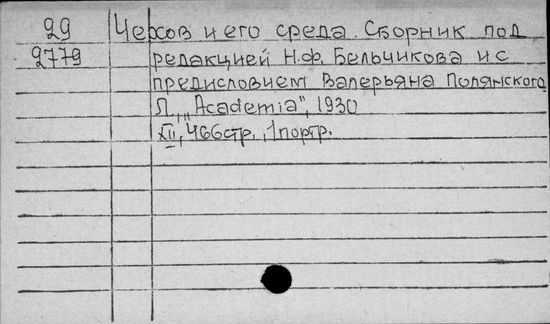 29 Чехов и его среда. Сборник под
2779 редакцией Н.Ф. Бельчикова и с
предисловием Валерьяна Полянского
Л., „Academia", 1930
XII, 466 стр., 1 портр.